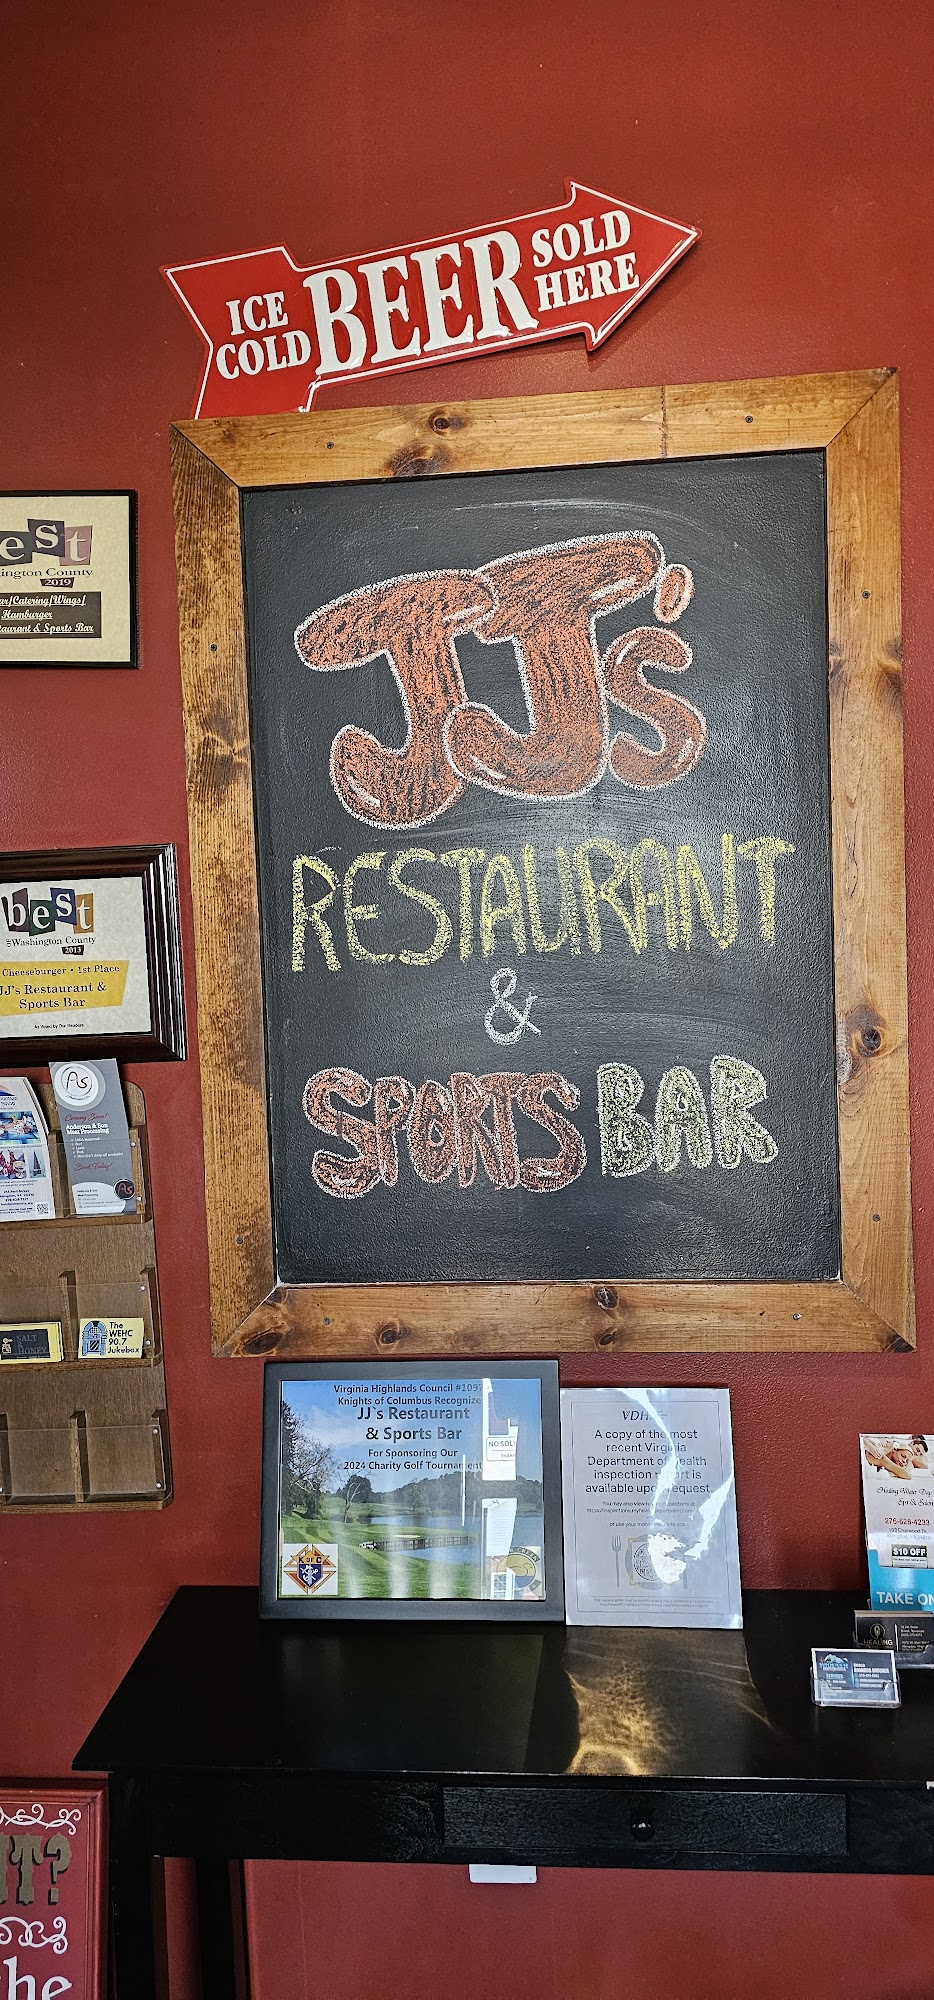 ICE
COLD
BEER
SOLD
HERE
JJ's
RESTAURANT
&
SPORTS BAR
est
ington County
2019
ar/Catering/Wings/
Hamburger
taurant & Sports Bar
best
OF Washington County
2013
Cheeseburger • 1st Place
JJ's Restaurant &
Sports Bar
As Voted by Our Readers
As
Coming Soon!
Anderson & Son
Meat Processing
Book Today!
As
SALT
HONEY
The
WEHC
90.7
Jukebox
Virginia Highlands Council #1097
Knights of Columbus Recognize
JJ`s Restaurant
& Sports Bar
For Sponsoring Our
2024 Charity Golf Tournament
K OF C
NO SOLI
VDH
A copy of the most
recent Virginia
Department of Health
inspection report is
available upon request.
Spa & Salon
276-628-4233
$10 OFF
TAKE ON
HEALING
IT?
he